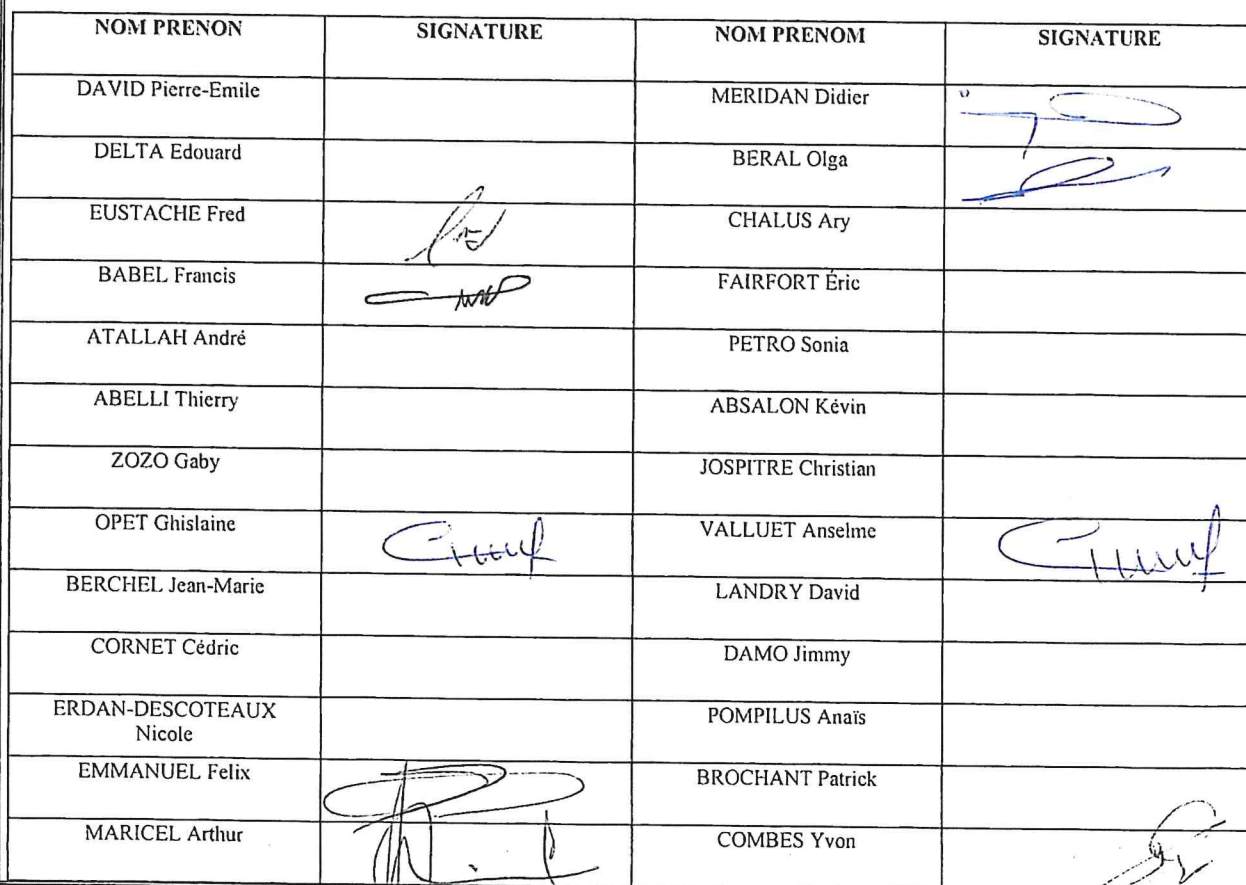 NOM PRENON SIGNATURE NOM PRENOM SIGNATURE
DAVID Pierre-Emile MERIDAN Didier
DELTA Edouard BERAL Olga
EUSTACHE Fred CHALUS Ary
BABEL Francis FAIRFORT Éric
ATALLAH André PETRO Sonia
ABELLI Thierry ABSALON Kévin
ZOZO Gaby JOSPITRE Christian
OPET Ghislaine VALLUET Anselme
BERCHEL Jean-Marie LANDRY David
CORNET Cédric DAMO Jimmy
ERDAN-DESCOTEAUX
Nicole POMPILUS Anaïs
EMMANUEL Felix BROCHANT Patrick
MARICEL Arthur COMBES Yvon